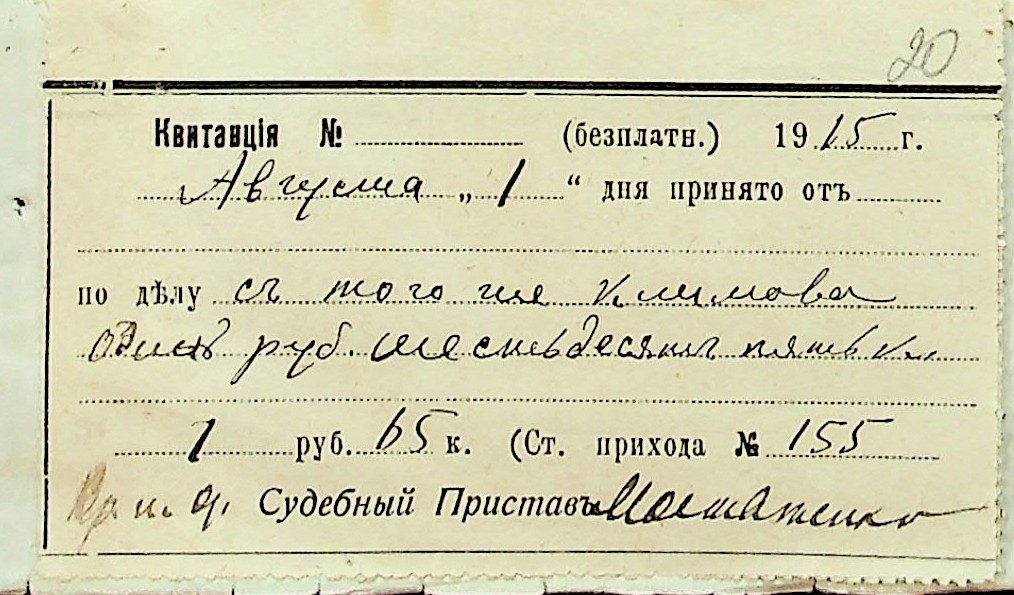 20
Квитанцiя № (безплатн.) 1915 г.
Августа „ 1 “ дня принято отъ
по дѣлу съ того же Климова
одинъ руб. шестьдесятъ пять к.
1 руб. 65 к. (Ст. прихода № 155
Судебный Приставъ